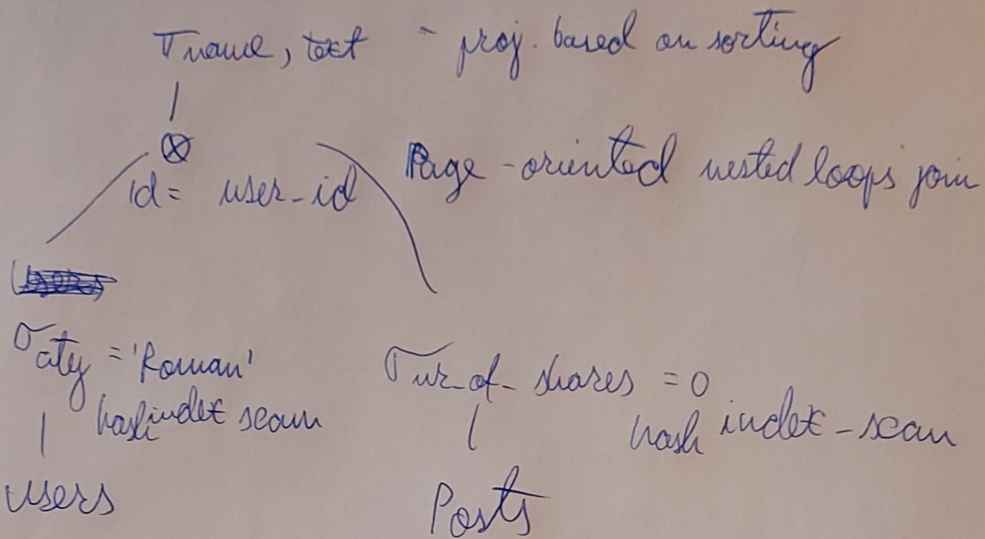 πname, text - proj. based on sorting
⊗
id = user_id Page-oriented nested loops join
σcity = 'Roman'
hash index scan
σnr_of_shares = 0
hash index-scan
Users
Posts